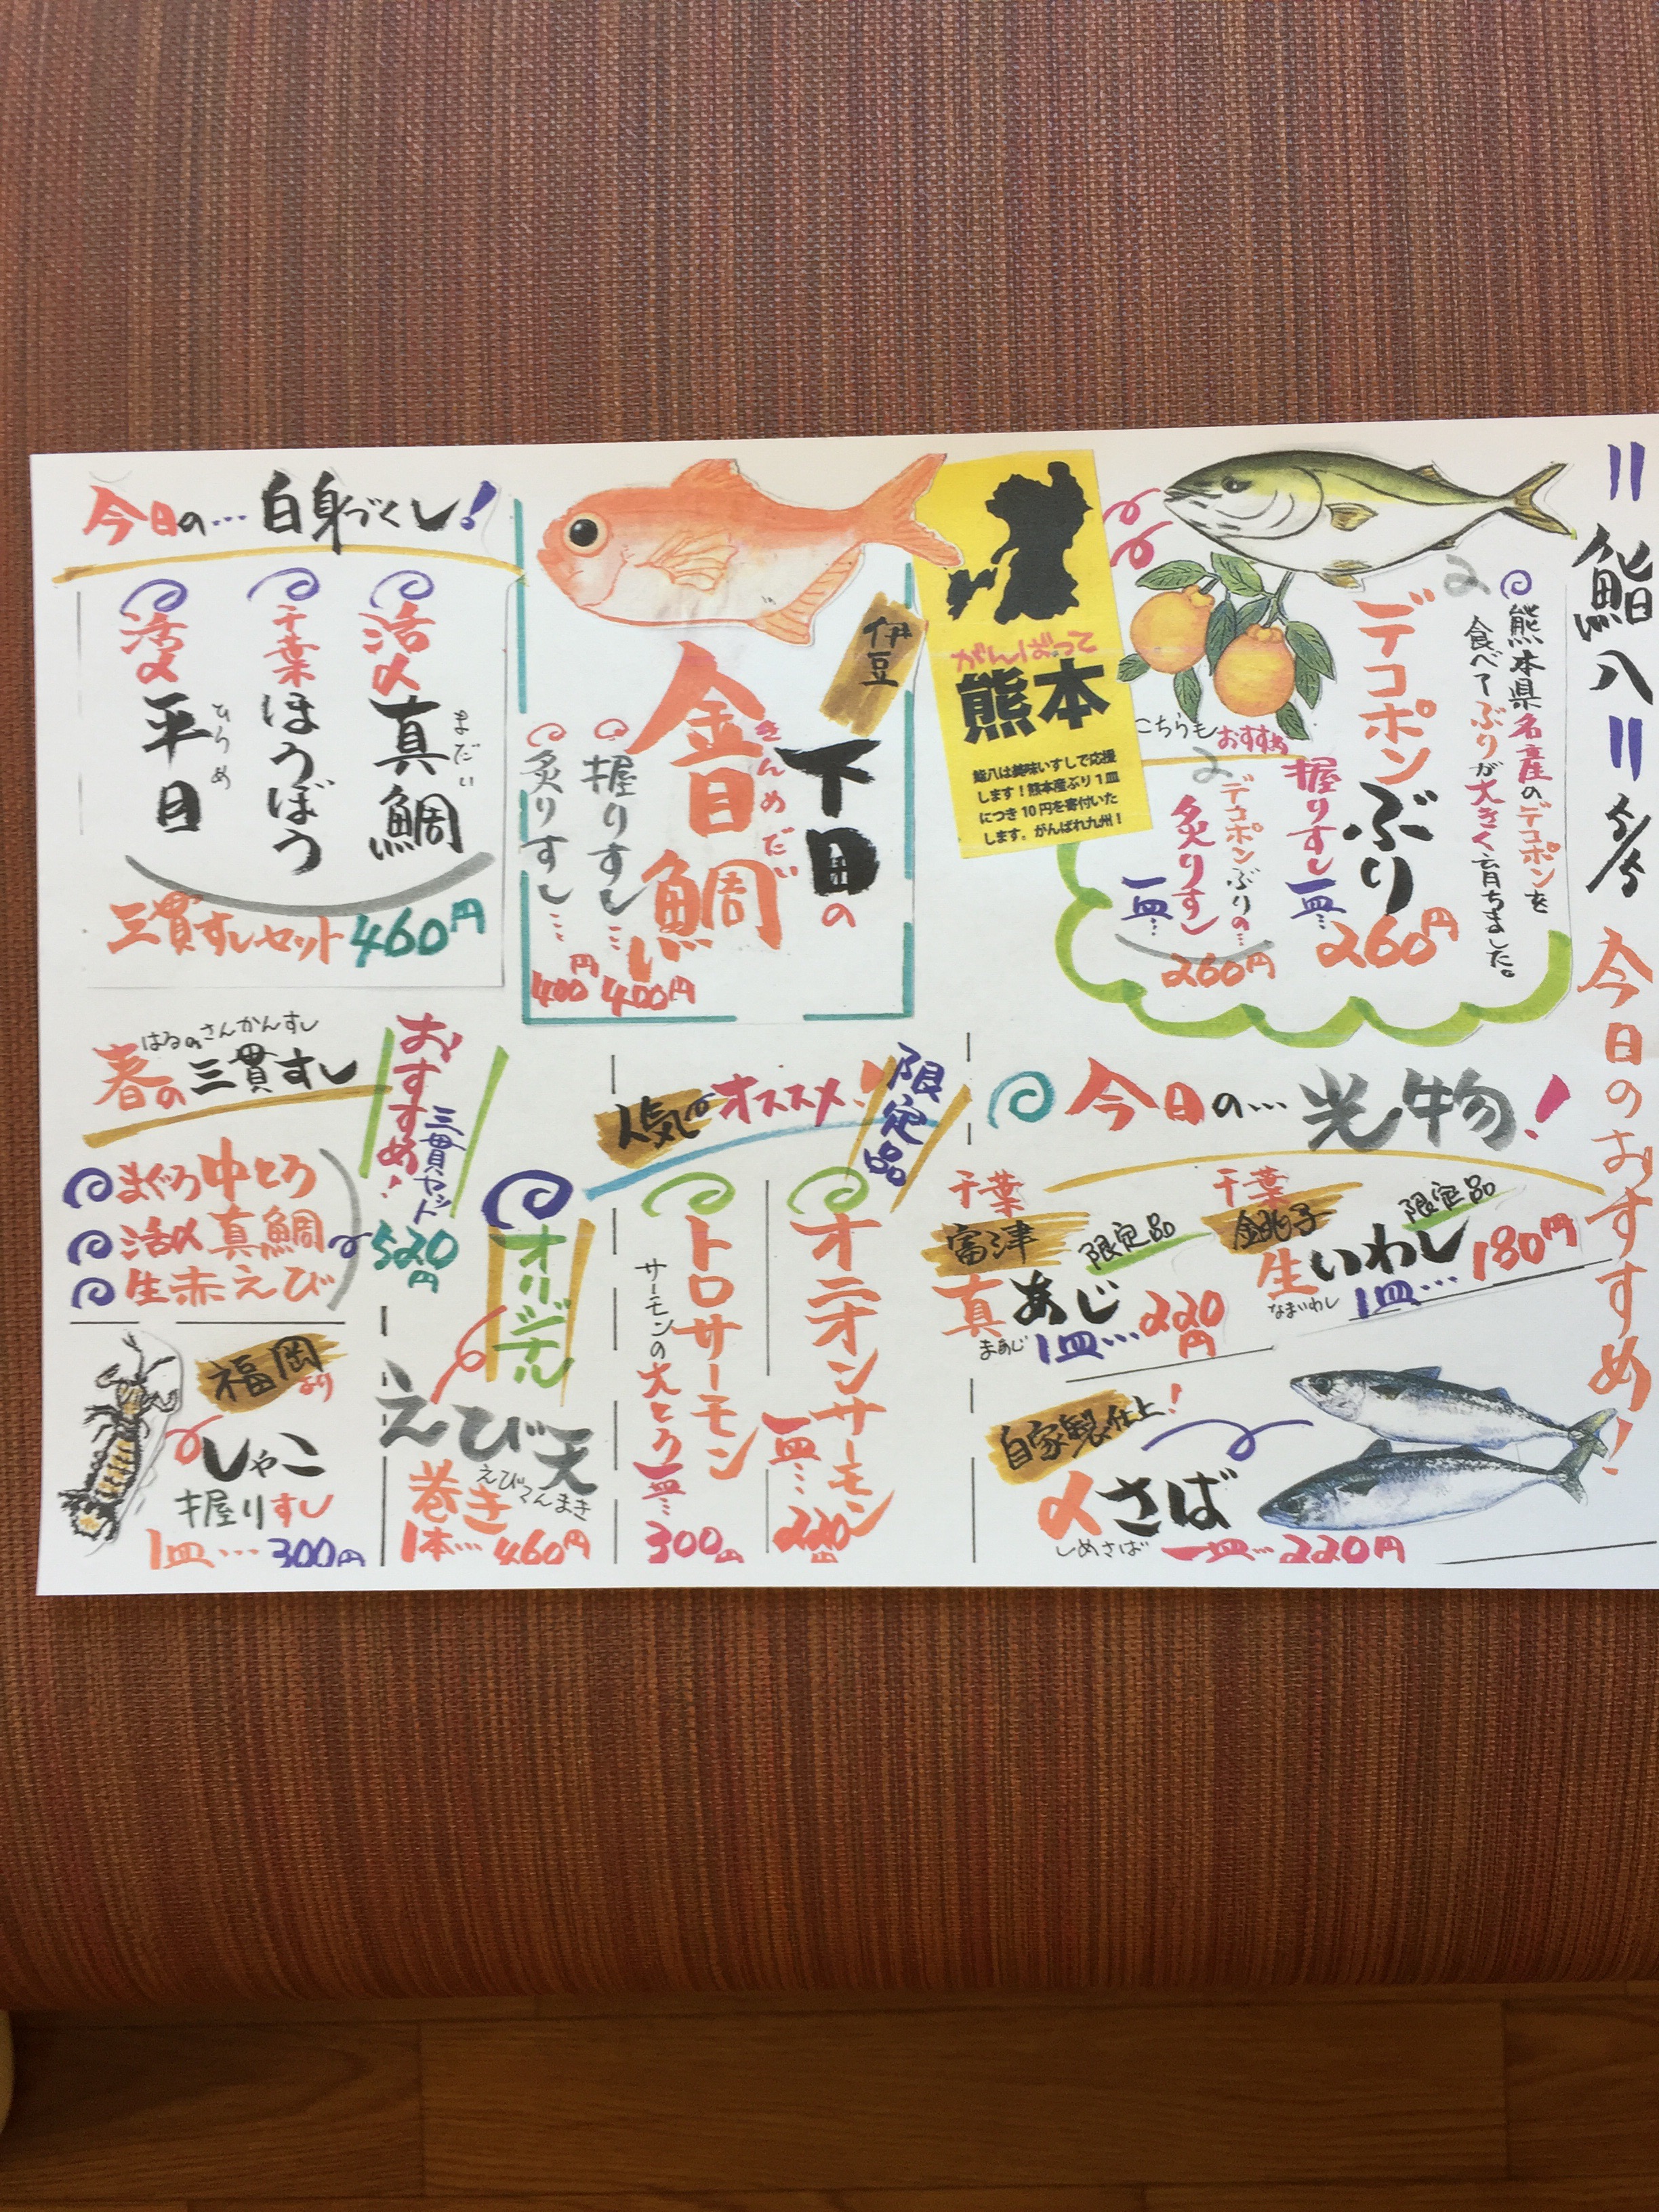 〃鮨八〃 5/5 今日のおすすめ!
熊本県名産のデコポンを
食べてぶりが大きく育ちました。
デコポンぶり
握りすし一皿… 260円
こちらもおすすめ
デコポンぶりの…
炙りすし一皿… 260円
がんばって
熊本
鮨八は美味いすしで応援
します！熊本産ぶり1皿
につき10円を寄付いた
します。がんばれ九州！
伊豆
下田の
金目鯛
きんめだい
握りすし… 400円
炙りすし… 400円
今日の…白身づくし!
活〆真鯛
まだい
千葉ほうぼう
活〆平目
ひらめ
三貫すしセット460円
今日の…光物!
千葉
銚子
限定品
生いわし
なまいわし
1皿…180円
千葉
富津
限定品
真あじ
まあじ
1皿…220円
自家製仕上!
〆さば
しめさば
一皿…220円
限定品
人気のオススメ!
オニオンサーモン
一皿… 220円
トロサーモン
サーモンの大とろ一皿… 300円
オリジナル
えび天
巻き
えびてんまき
1本…460円
おすすめ!
三貫セット
520円
はるのさんかんすし
春の三貫すし
まぐろ中とろ
活〆真鯛
生赤えび
福岡より
しゃこ
握りすし
1皿…300円